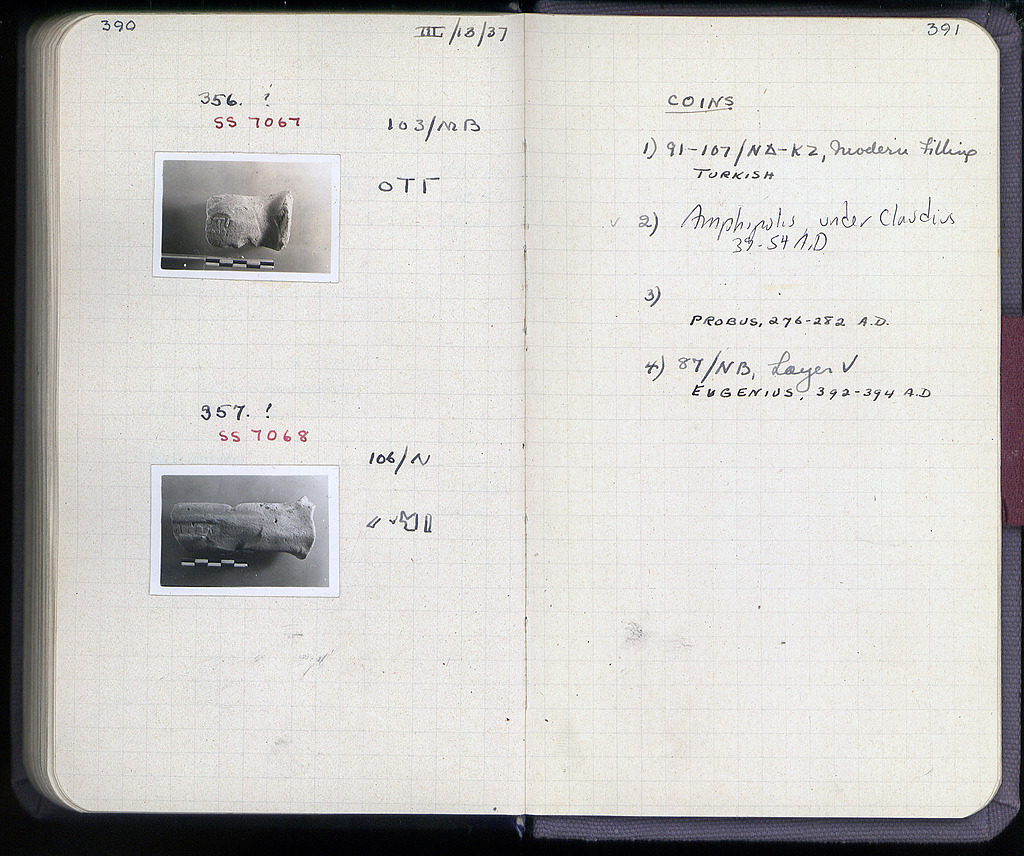 390
III/13/37
356. ?
SS 7067
103/MB
ΟΤΓ
357. !
SS 7068
106/N
391
COINS
1) 91-107/NΔ-KZ, Modern Filling
TURKISH
✓ 2) Amphipolis, under Claudius
39-54 A.D
3)
PROBUS, 276-282 A.D.
4) 87/NB, Layer V
EUGENIUS, 392-394 A.D